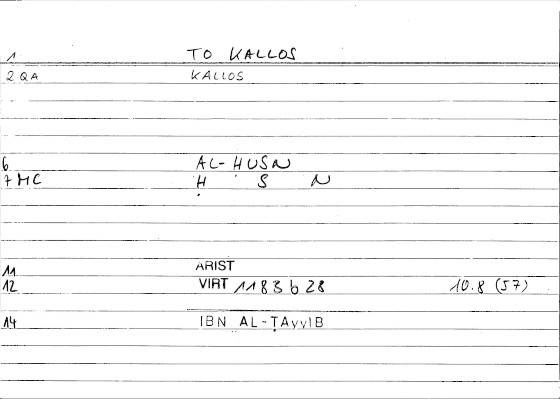 1 TO KALLOS
2 QA KALLOS
6 AL-HUSN
7 MC Ḥ S N
11 ARIST
12 VIRT 1183b28 10.8 (57)
14 IBN AL-ṬAyyIB